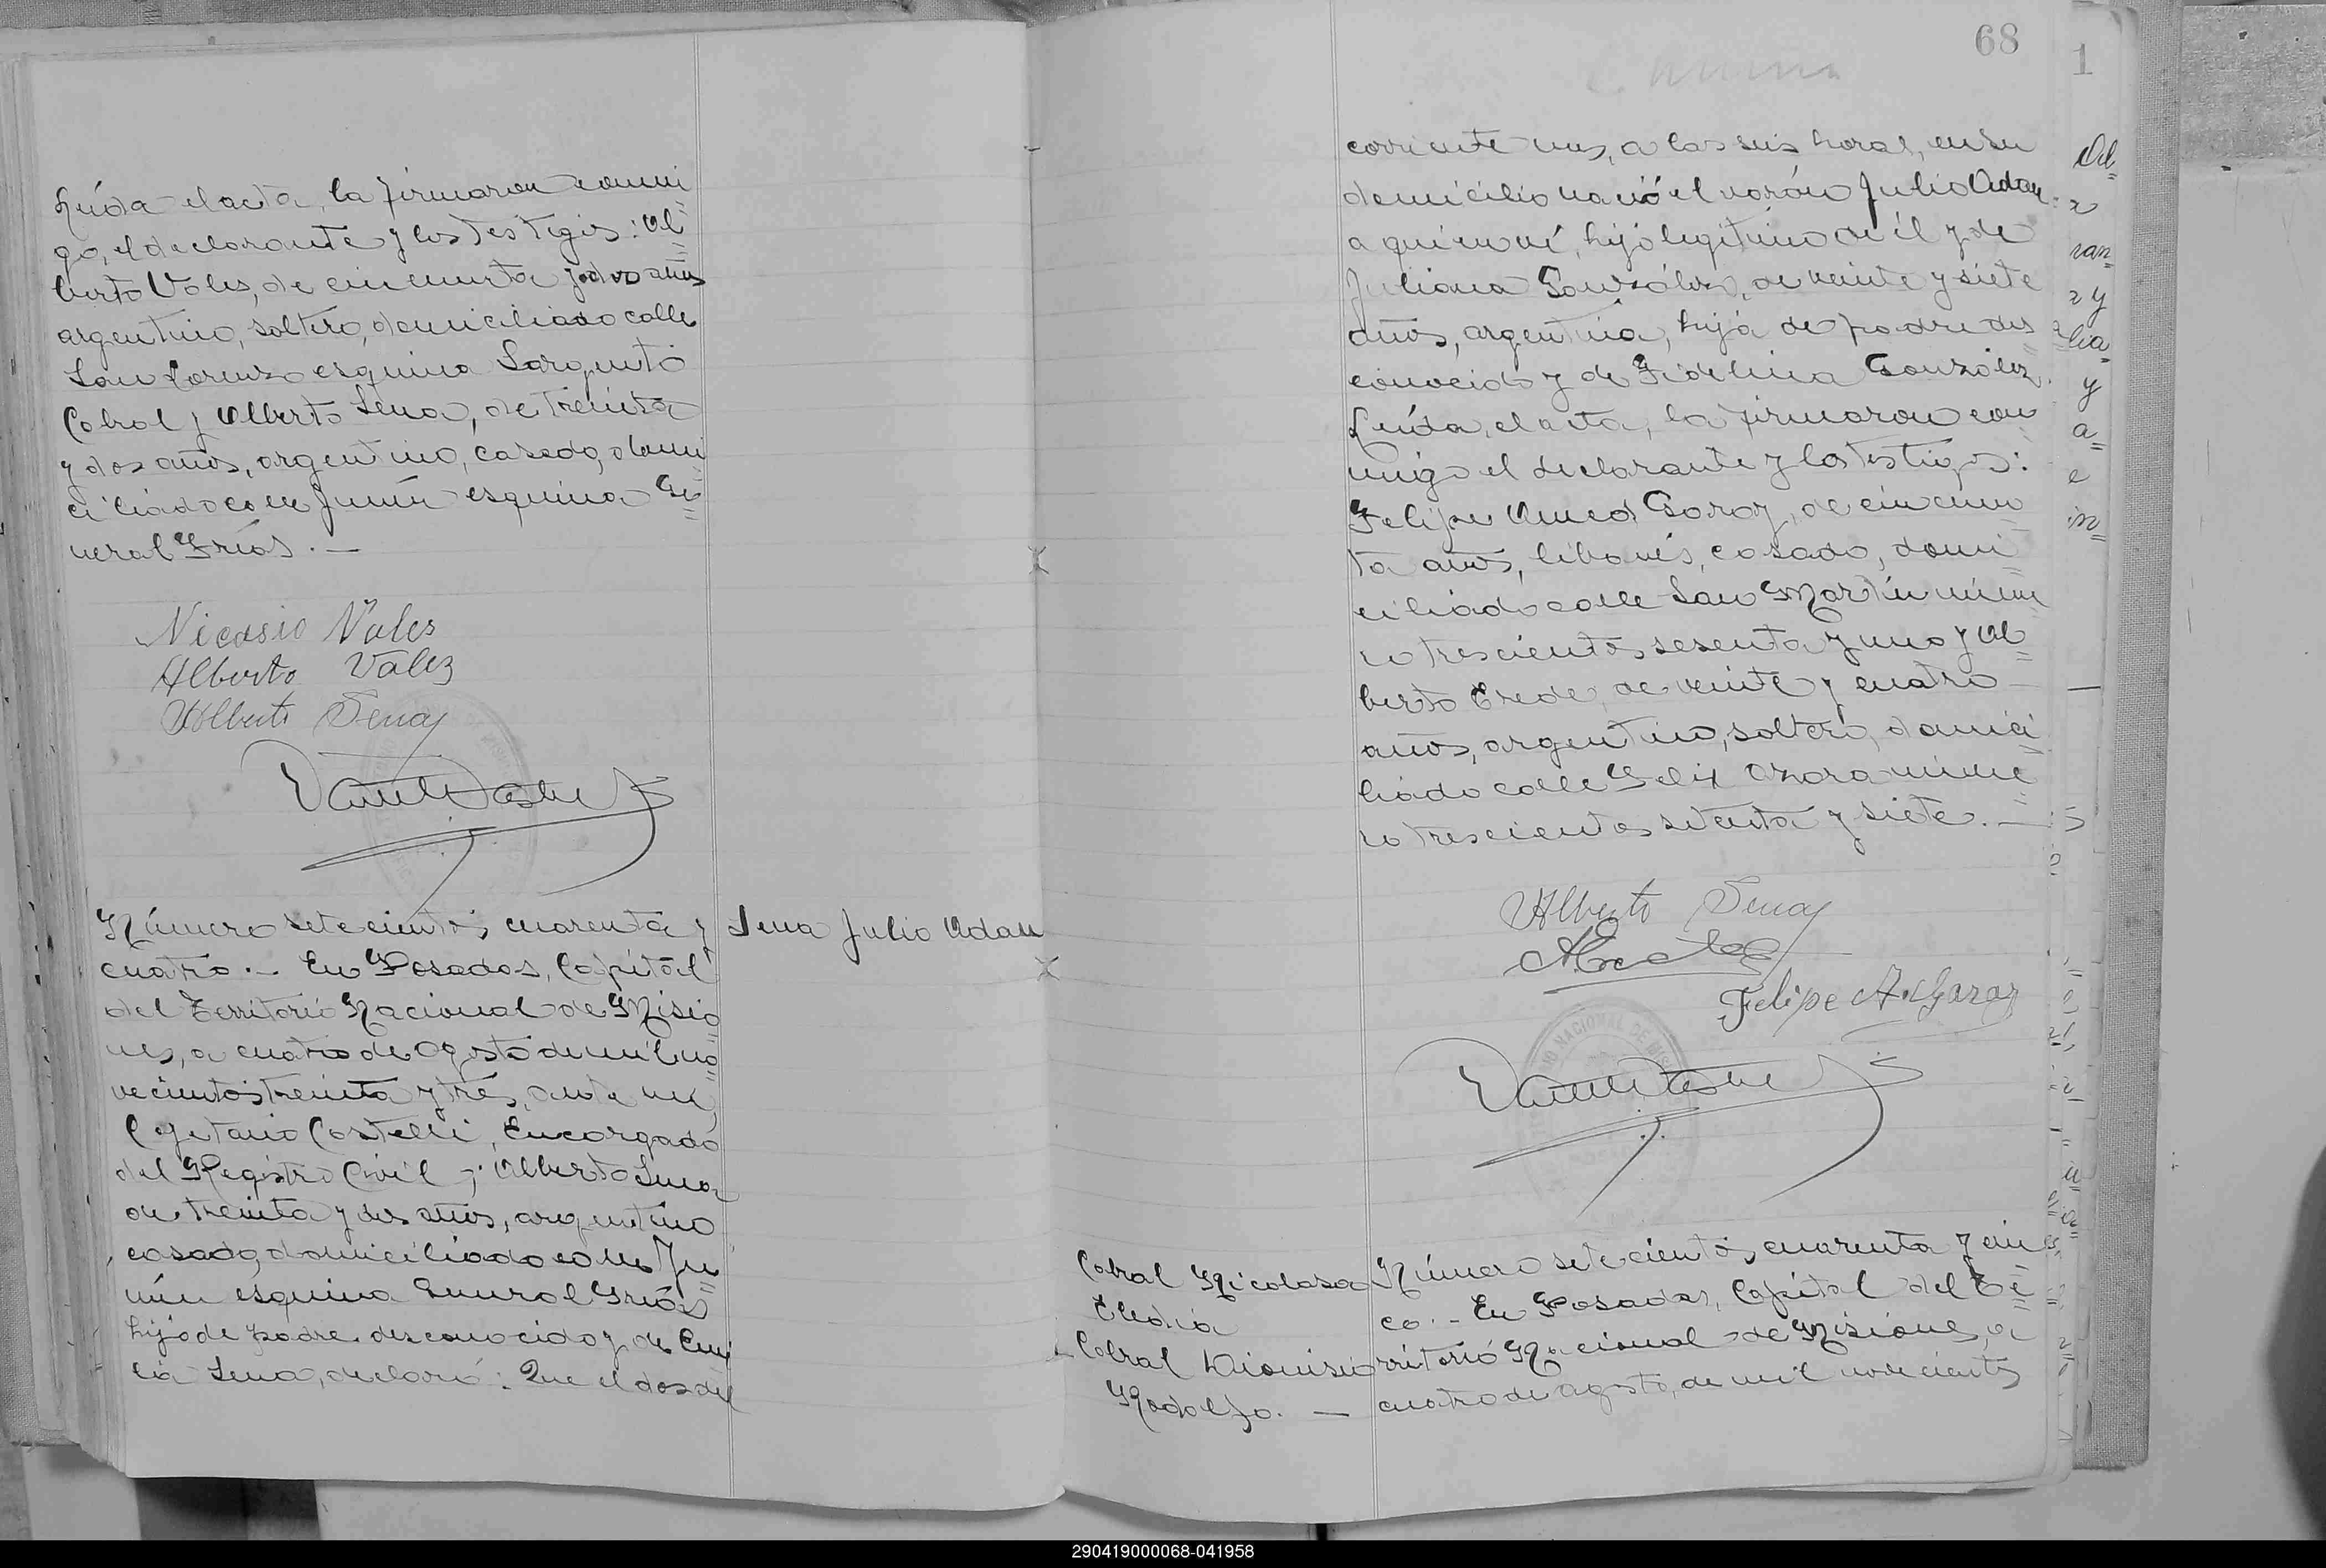 Leída el acta, la firmaron conmi
go, el declarante y los testigos: Al
berto Vales, de cincuenta y dos años
argentino, soltero, domiciliado calle
San Lorenzo esquina Sargento
Cabral y Alberto Sena, de treinta
y dos años, argentino, casado, domi
ciliado calle Junín esquina Ge
neral Frías. —
Nicasio Vales
Alberto Valez
Alberto Sena
Número setecientos cuarenta y
cuatro. — En Posadas, Capital
del Territorio Nacional de Misio
nes, a cuatro de Agosto de mil no
vecientos treinta y tres, ante mí,
Cayetano Castelli, Encargado
del Registro Civil; Alberto Sena
de treinta y dos años, argentino
casado, domiciliado calle Ju
nín esquina General Frías
hijo de padre desconocido y de Emi
lia Sena, declaró: Que el dos del
Sena Julio Adan
68
corriente mes, a las seis horas, en su
domicilio nació el varón Julio Adan
a quien vi, hijo legítimo de él y de
Juliana González, de veinte y siete
años, argentina, hija de padre des
conocido y de Fidelina González.
Leída, el acta, la firmaron con
migo el declarante y los testigos:
Felipe Amed Garay, de cincuen
ta años, libanés, casado, domi
ciliado calle San Martín núme
ro trescientos sesenta y uno y Al
berto Erede, de veinte y cuatro
años, argentino, soltero, domici
liado calle Felix Azara núme
ro trescientos setenta y siete. —
Alberto Sena
Felipe A. Garay
Cabral Nicolasa
Eledia
Cabral Dionisio
Rodolfo. —
Número setecientos cuarenta y cin
co. — En Posadas, Capital del Te
rritorio Nacional de Misiones, a
cuatro de agosto, de mil novecientos
1
290419000068-041958